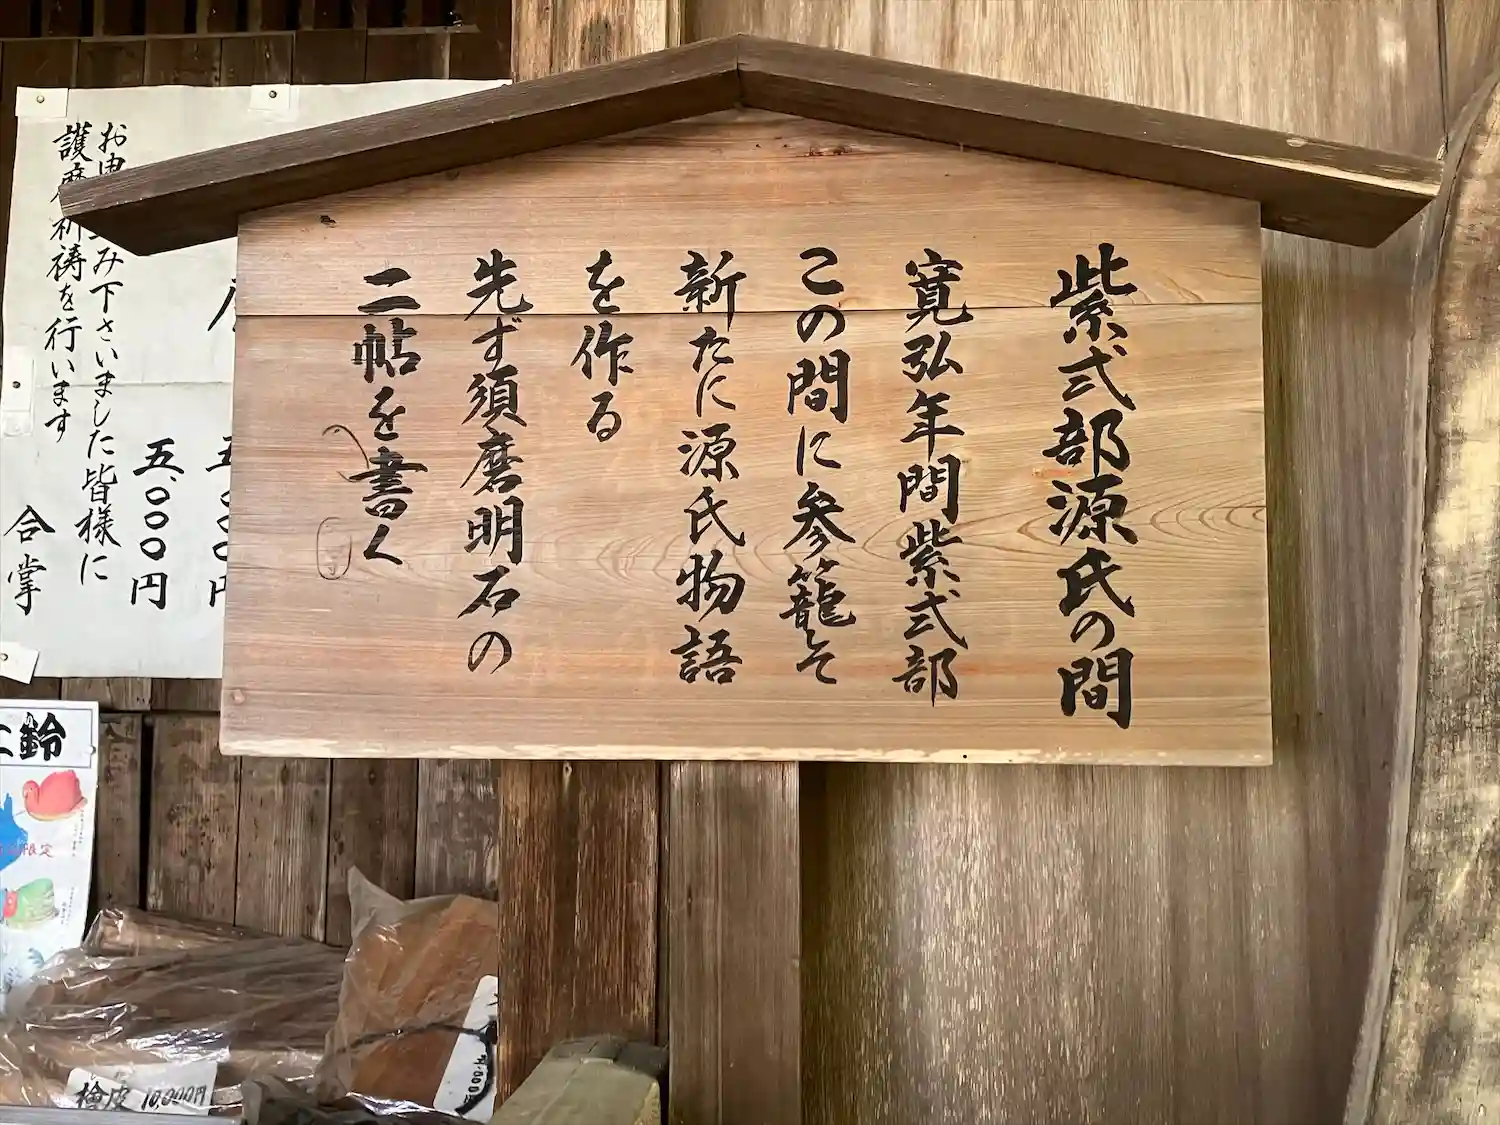 紫式部源氏の間
寛弘年間紫式部
この間に参籠そ
新たに源氏物語
を作る
先ず須磨明石の
二帖を書く
五,000円
お申込み下さいました皆様に
護摩祈祷を行います
合掌
鈴
限定
檜皮 10,000円